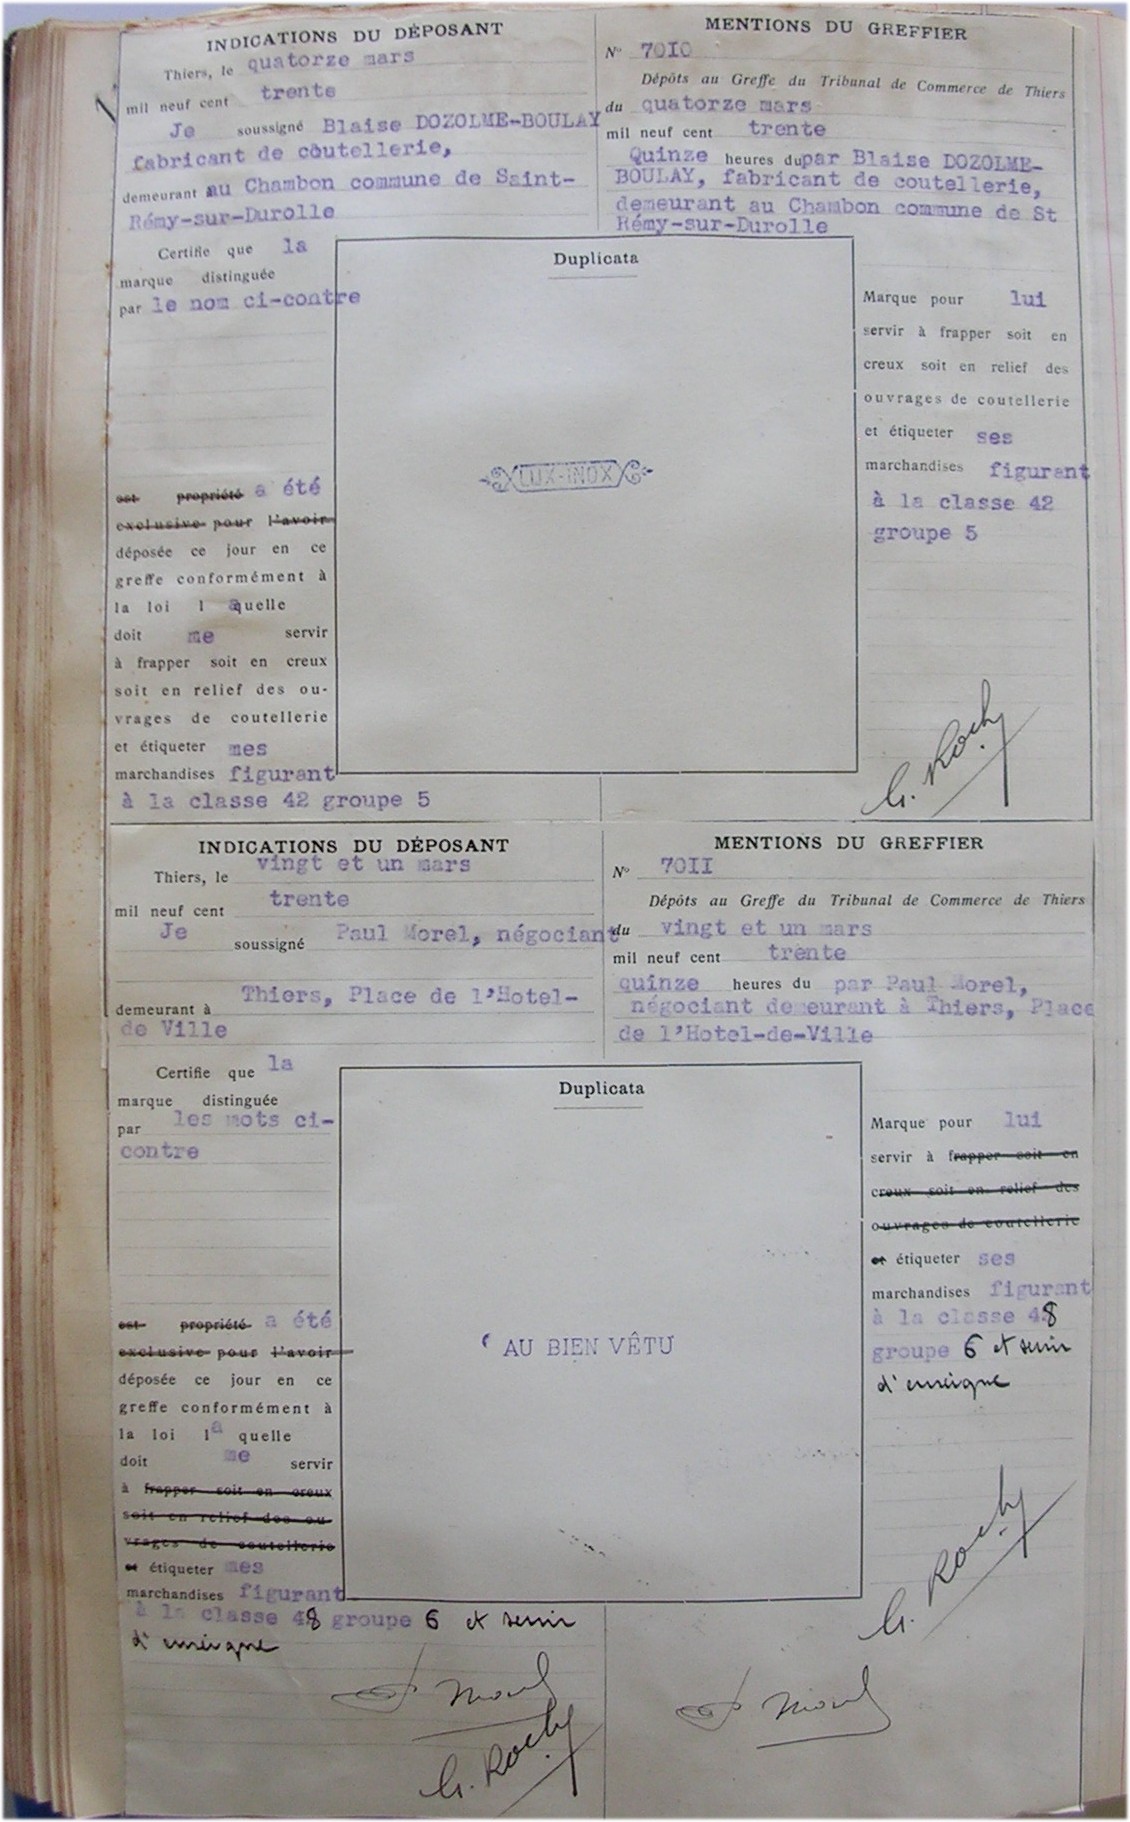 INDICATIONS DU DÉPOSANT
Thiers, le quatorze mars
mil neuf cent trente
Je soussigné Blaise DOZOLME-BOULAY
fabricant de coutellerie,
demeurant au Chambon commune de Saint-
Rémy-sur-Durolle
Certifie que la
marque distinguée
par le nom ci-contre
est propriété a été
exclusive pour l'avoir
déposée ce jour en ce
greffe conformément à
la loi laquelle
doit me servir
à frapper soit en creux
soit en relief des ou-
vrages de coutellerie
et étiqueter mes
marchandises figurant
à la classe 42 groupe 5
Duplicata
LUX-INOX
MENTIONS DU GREFFIER
N° 7010
Dépôts au Greffe du Tribunal de Commerce de Thiers
du quatorze mars
mil neuf cent trente
Quinze heures du par Blaise DOZOLME-
BOULAY, fabricant de coutellerie,
demeurant au Chambon commune de St
Rémy-sur-Durolle
Marque pour lui
servir à frapper soit en
creux soit en relief des
ouvrages de coutellerie
et étiqueter ses
marchandises figurant
à la classe 42
groupe 5
G. Rochy
INDICATIONS DU DÉPOSANT
Thiers, le vingt et un mars
mil neuf cent trente
Je soussigné Paul Morel, négociant
demeurant à Thiers, Place de l'Hotel-
de Ville
Certifie que la
marque distinguée
par les mots ci-
contre
est propriété a été
exclusive pour l'avoir
déposée ce jour en ce
greffe conformément à
la loi la quelle
doit me servir
à frapper soit en creux
soit en relief des ou-
vrages de coutellerie
et étiqueter mes
marchandises figurant
à la classe 48 groupe 6 et servir
d'enseigne
P Morel
G. Rochy
Duplicata
AU BIEN VÊTU
MENTIONS DU GREFFIER
N° 7011
Dépôts au Greffe du Tribunal de Commerce de Thiers
du vingt et un mars
mil neuf cent trente
quinze heures du par Paul Morel,
négociant demeurant à Thiers, Place
de l'Hotel-de-Ville
Marque pour lui
servir à frapper soit en
creux soit en relief des
ouvrages de coutellerie
et étiqueter ses
marchandises figurant
à la classe 48
groupe 6 et servir
d'enseigne
G. Rochy
P Morel